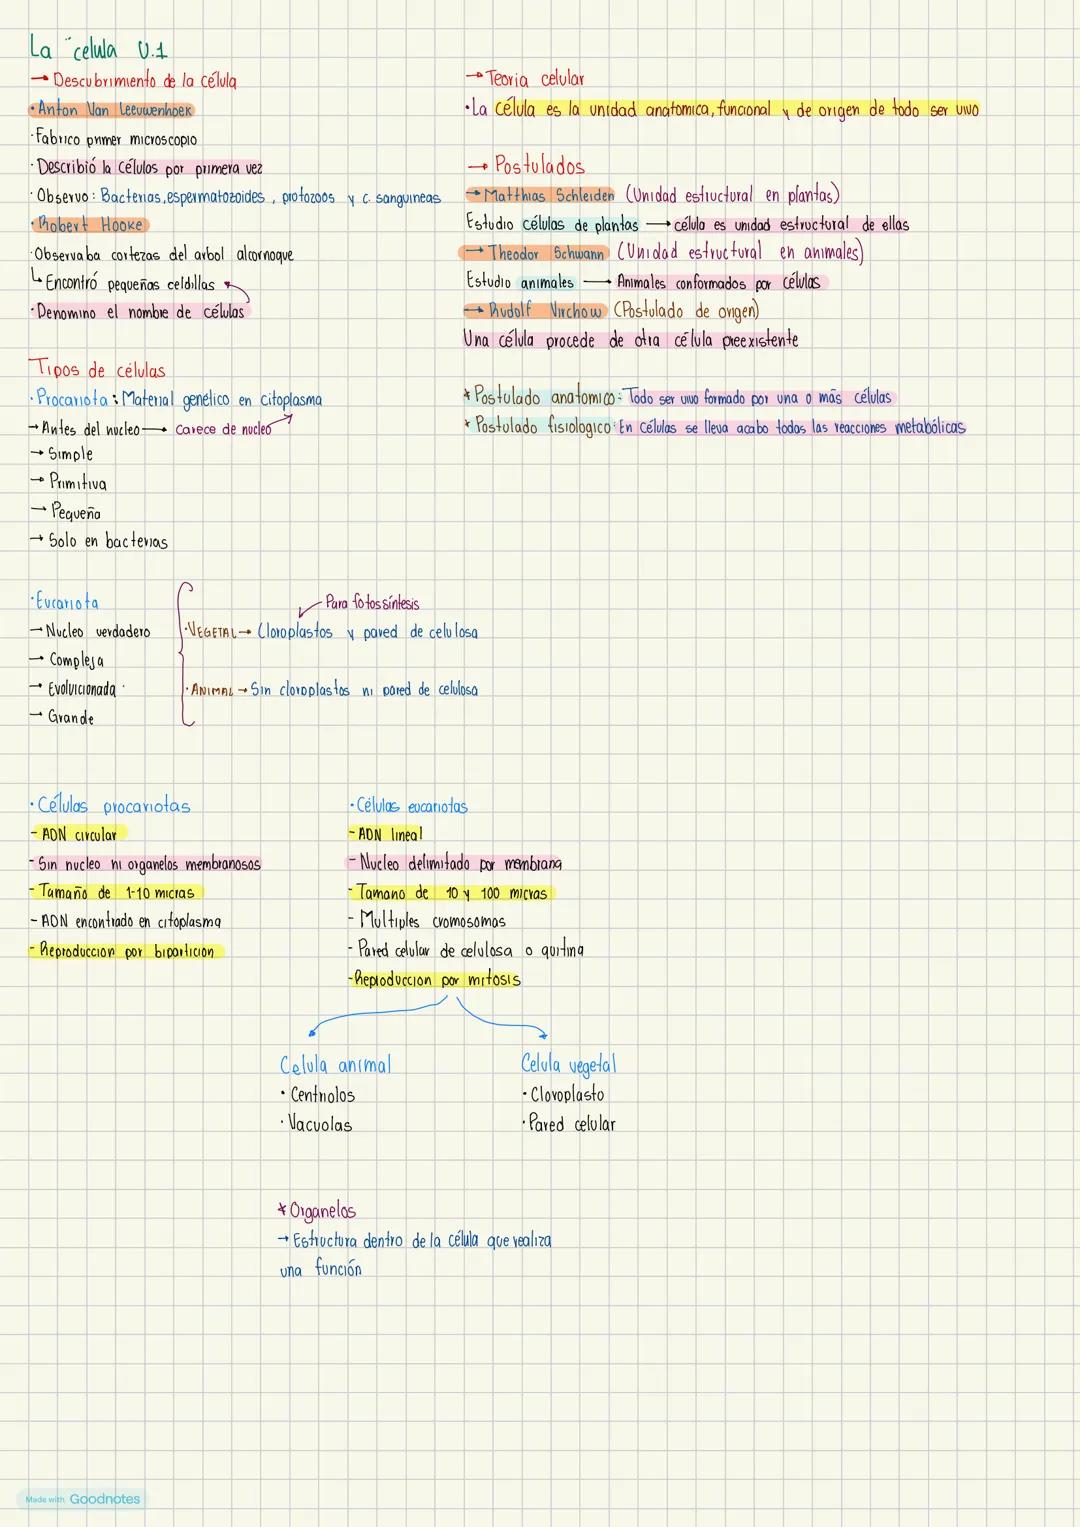 La celula U.1
→ Descubrimiento de la célula
• Anton Van Leeuwenhoek
· Fabrico primer microscopio
· Describió la Células por primera vez
· Observo: Bacterias, espermatozoides, protozoos y c. sanguineas
• Robert Hooke
· Observaba cortezas del arbol alcornoque
↳ Encontró pequeñas celdillas
· Denomino el nombre de células
Tipos de células
· Procariota: Material genético en citoplasma
→ Antes del nucleo → carece de nucleo
→ Simple
→ Primitiva
→ Pequeña
→ Solo en bacterias
· Eucariota
→ Nucleo verdadero
→ Compleja
→ Evolucionada
→ Grande
Para fotossíntesis
· VEGETAL → Cloroplastos y pared de celulosa
· ANIMAL → Sin cloroplastos ni pared de celulosa
→ Teoria celular
• La Célula es la unidad anatomica, funcional y de origen de todo ser vivo
→ Postulados
→ Matthias Schleiden (Unidad estructural en plantas)
Estudio células de plantas → célula es unidad estructural de ellas
→ Theodor Schwann (Unidad estructural en animales)
Estudio animales → Animales conformados por células
→ Rudolf Virchow (Postulado de origen)
Una célula procede de otra célula preexistente
* Postulado anatomico: Todo ser vivo formado por una o más células
* Postulado fisiologico: En Células se lleva acabo todas las reacciones metabólicas
· Células procariotas
- ADN circular
- Sin nucleo ni organelos membranosos
- Tamaño de 1-10 micras
- ADN encontrado en citoplasma
- Reproduccion por biparticion
· Células eucariotas
- ADN lineal
- Nucleo delimitado por membrana
- Tamano de 10 y 100 micras
- Multiples cromosomas
- Pared celular de celulosa o quitina
- Reproduccion por mitosis
Celula animal
· Centriolos
· Vacuolas
Celula vegetal
· Cloroplasto
· Pared celular
* Organelos
→ Estructura dentro de la célula que realiza
una función
Made with Goodnotes